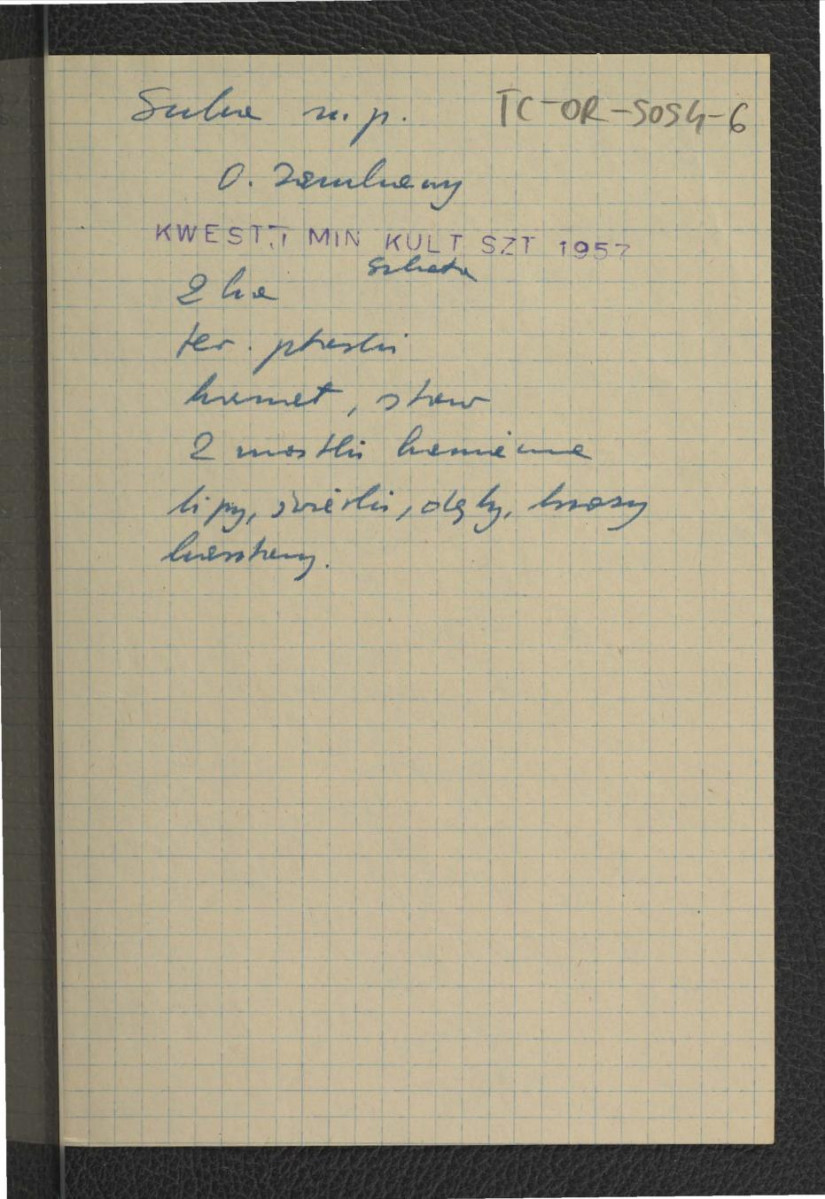 Sulwa n.p. TC-OR-5054-6
O. Zamkowy
KWESTJ MIN KULT SZT 1957
szkoła
2 ha
ter. płaski
kamet, staw
2 mostki kamienne
lipy, świerki, dęby, brzozy
kasztany.